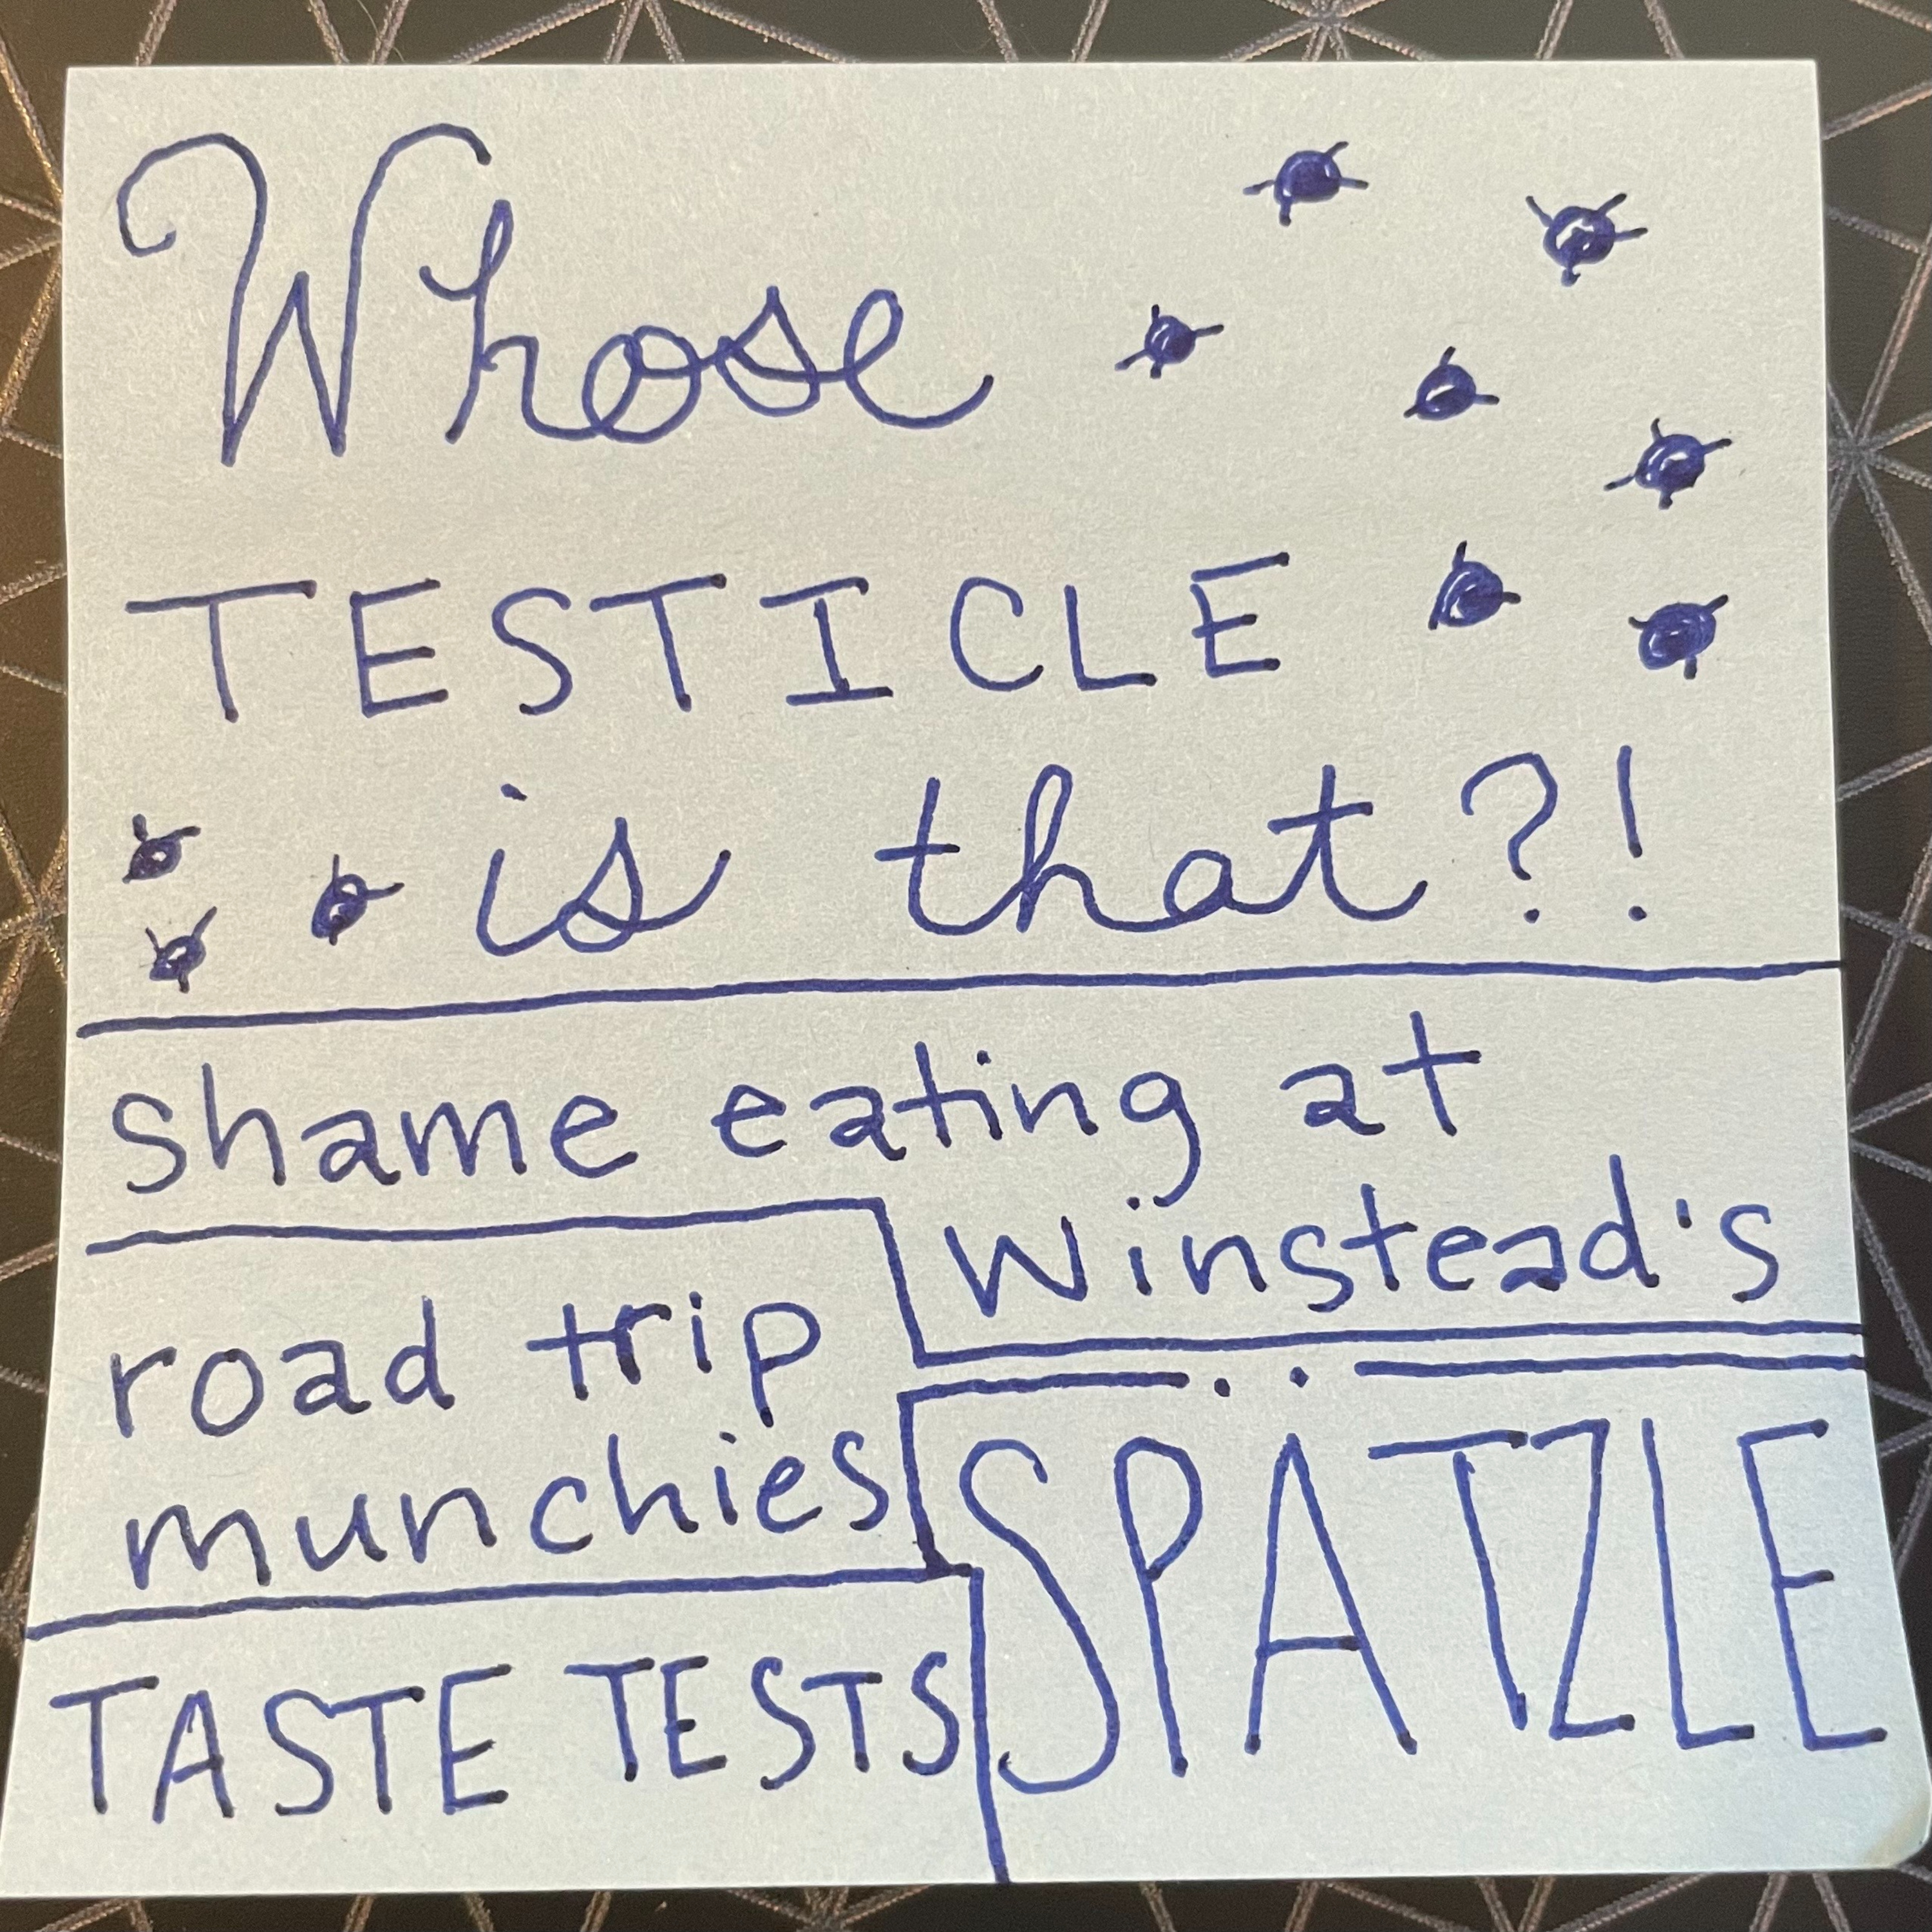 Whose
TESTICLE
is that?!
shame eating at
Winstead's
road trip
munchies
SPÄTZLE
TASTE TESTS